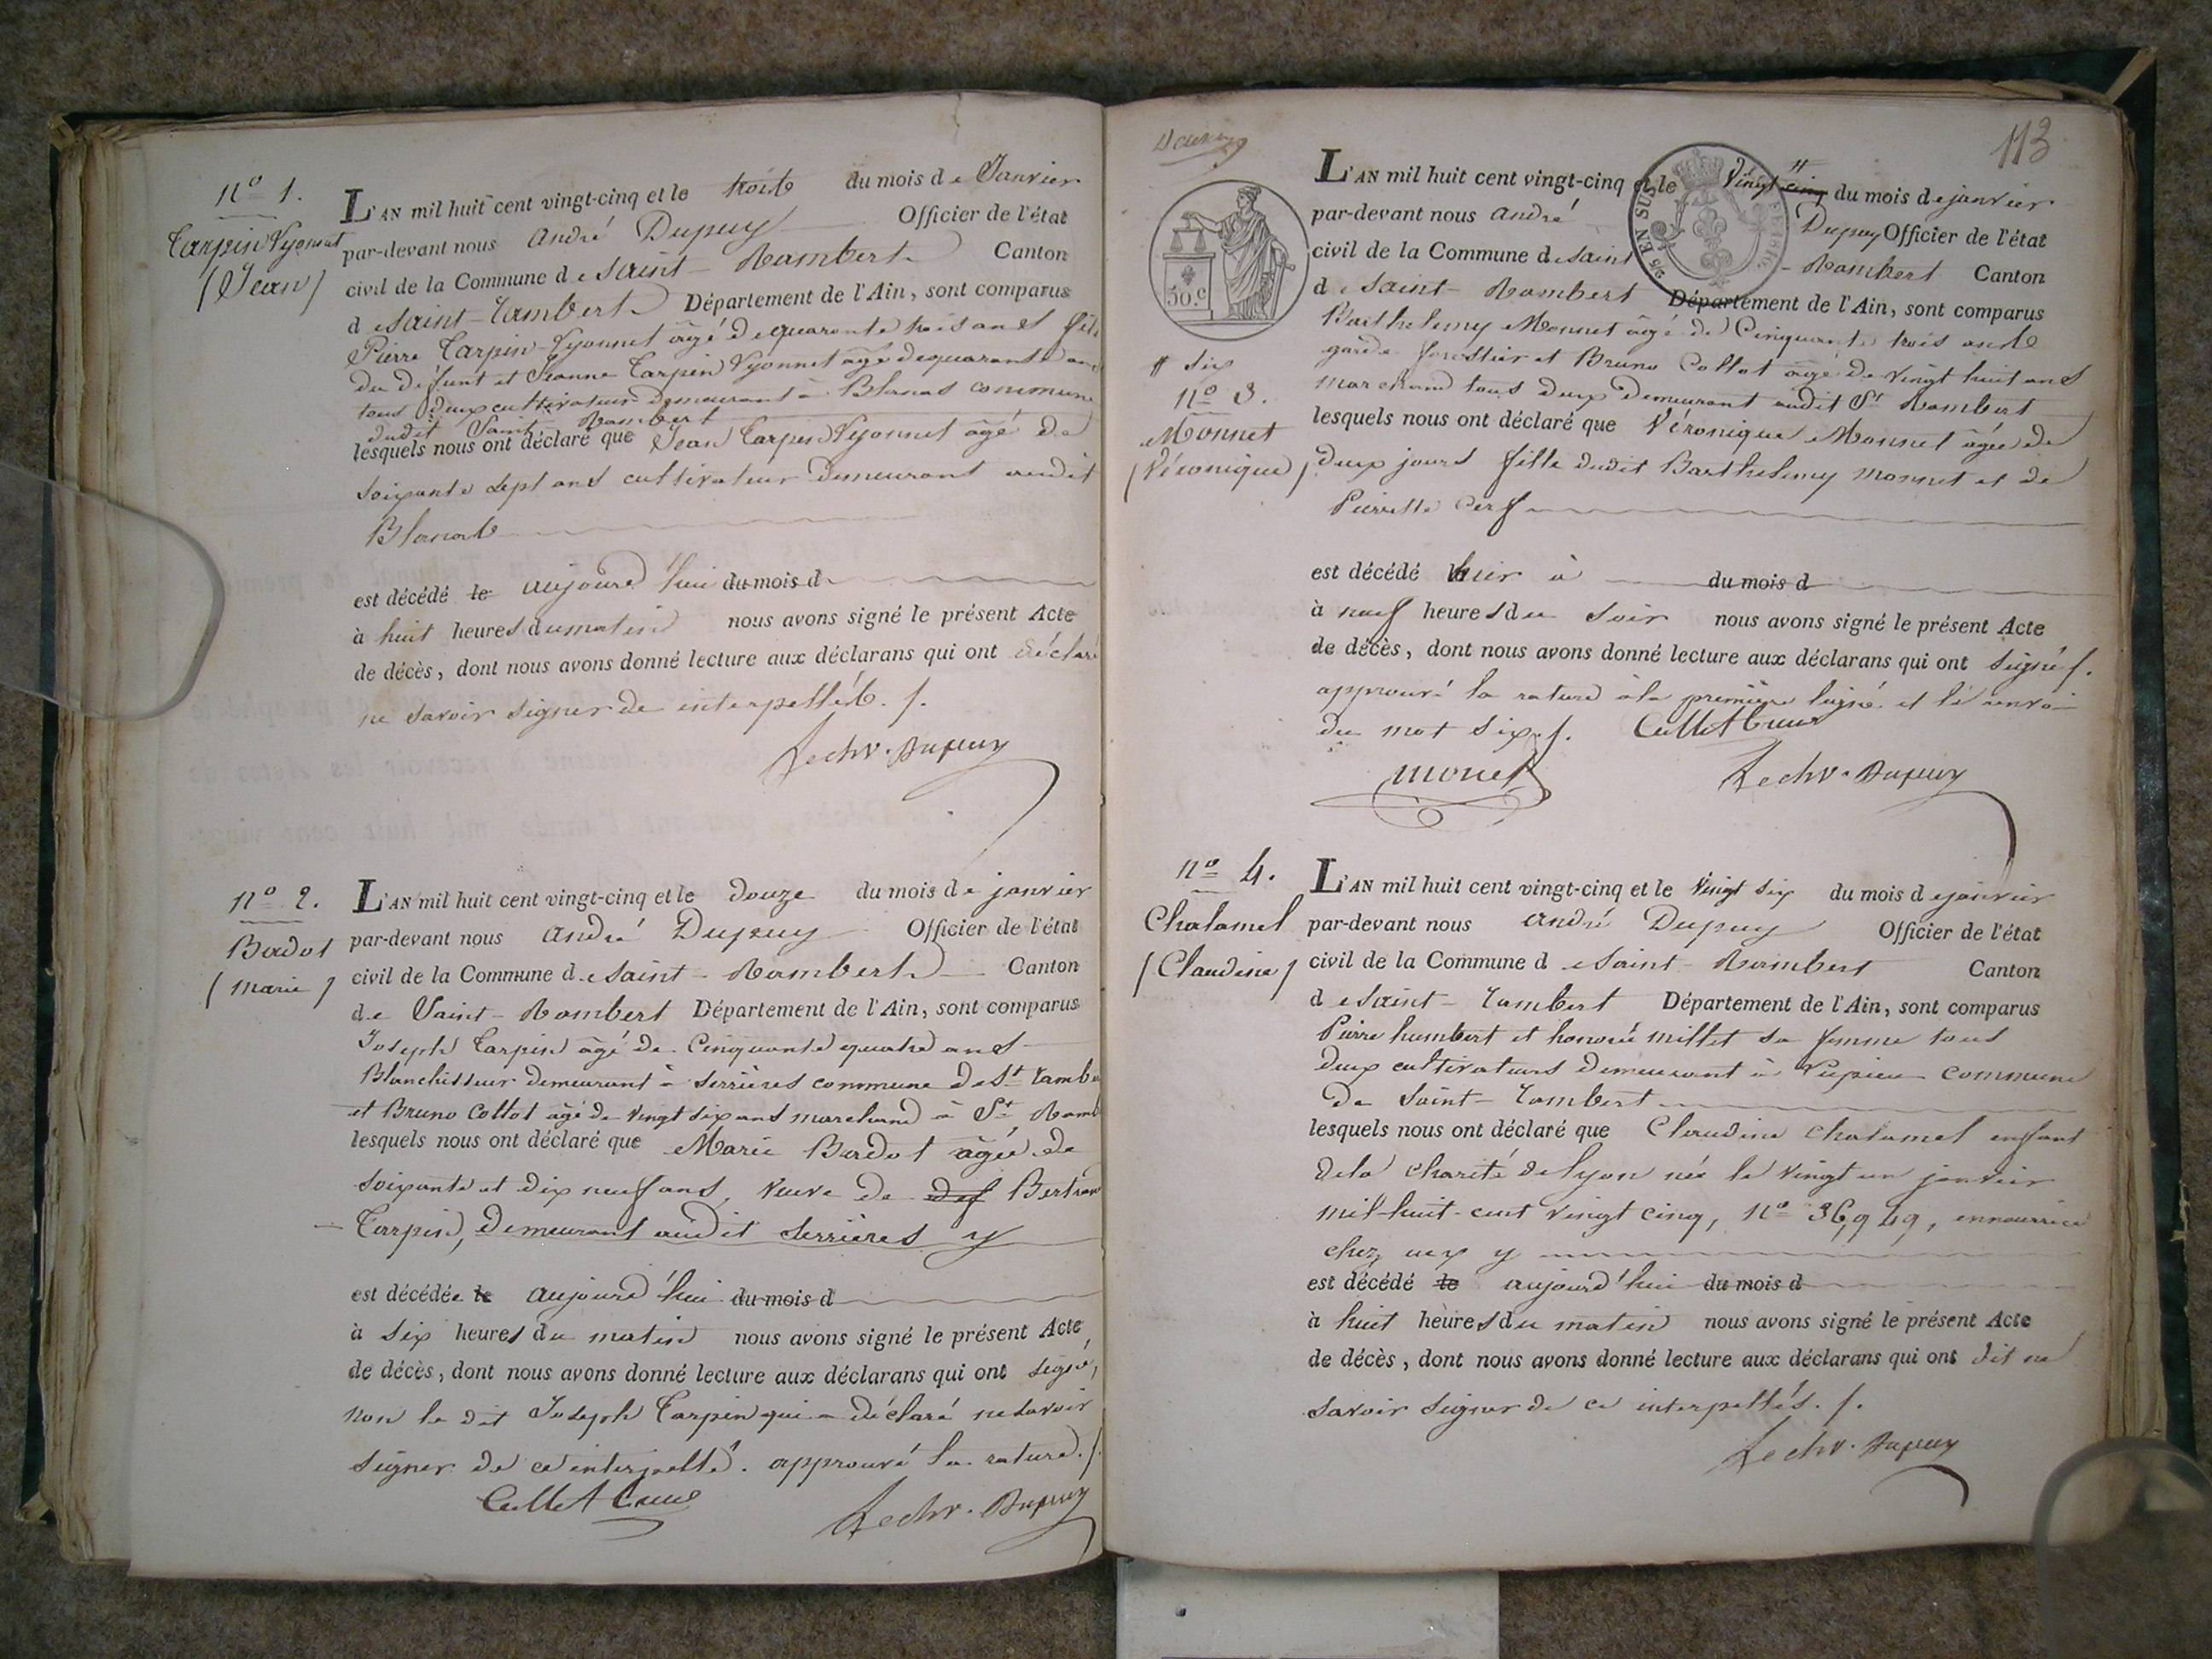 nº 1.
Carpin Vyonnet
(Jean)
L'AN mil huit cent vingt-cinq et le trois du mois de Janvier
par-devant nous André Dupuy Officier de l'état
civil de la Commune de Saint-Rambert Canton
de Saint-Rambert Département de l'Ain, sont comparus
Pierre Carpin-Vyonnet âgé de quarante trois ans fils
du défunt et Jeanne Carpin Vyonnet âgé de quarante ans
tous deux cultivateurs demeurant à Blanas commune
dudit Saint Rambert
lesquels nous ont déclaré que Jean Carpin Vyonnet âgé de
soixante sept ans cultivateur demeurant audit
Blanas
est décédé le aujourd'hui du mois d
à huit heures du matin nous avons signé le présent Acte
de décès, dont nous avons donné lecture aux déclarans qui ont déclaré
ne savoir signer de interpellés.
Le chr. Dupuy
nº 2.
Badot
(marie)
L'AN mil huit cent vingt-cinq et le douze du mois de janvier
par-devant nous André Dupuy Officier de l'état
civil de la Commune de Saint-Rambert Canton
de Saint-Rambert Département de l'Ain, sont comparus
Joseph Carpin âgé de Cinquante quatre ans
Blanchisseur demeurant à Serrières commune de St. ramb
et Bruno Collot âgé de vingt six ans marchand à St. Ramb
lesquels nous ont déclaré que Marie Badot âgée de
soixante et dix neuf ans, veuve de def Bertran
Carpin, demeurant audit Serrières y
est décédée le aujourd'hui du mois d
à six heures du matin nous avons signé le présent Acte
de décès, dont nous avons donné lecture aux déclarans qui ont signé,
non le dit Joseph Carpin qui a déclaré ne savoir
signer de ce interpellé. approuvé la rature.
Le chr. Dupuy
113
50.c
2/5 EN SUS
L'AN mil huit cent vingt-cinq et le vingt cinq # du mois de janvier
par-devant nous André Dupuy Officier de l'état
civil de la Commune de Saint-Rambert Canton
de Saint-Rambert Département de l'Ain, sont comparus
Barthelemy Monnet âgé de Cinquante trois ans
garde forestier et Bruno Collot âgé de vingt huit ans
marchand tous deux demeurant audit St Rambert
# six
nº 3.
Monnet
(Véronique)
lesquels nous ont déclaré que Véronique Monnet âgée de
deux jours fille dudit Barthelemy Monnet et de
Pierrette Cerf
est décédé hier à du mois d
à neuf heures du soir nous avons signé le présent Acte
de décès, dont nous avons donné lecture aux déclarans qui ont signé
approuvé la rature à la première ligne et le renvoi
du mot six.
monet
Le chr. Dupuy
nº 4.
Chalamel
(Claudine)
L'AN mil huit cent vingt-cinq et le vingt six du mois de janvier
par-devant nous André Dupuy Officier de l'état
civil de la Commune de Saint-Rambert Canton
de Saint-Rambert Département de l'Ain, sont comparus
Pierre humbert et honorée millet sa femme tous
deux cultivateurs demeurant à commune
de Saint-Rambert
lesquels nous ont déclaré que Claudine Chalamel enfant
de la charité de lyon née le vingt un janvier
mil-huit-cent vingt cinq, Nº 36,949, en nourrice
chez eux y
est décédé le aujourd'hui du mois d
à huit heures du matin nous avons signé le présent Acte
de décès, dont nous avons donné lecture aux déclarans qui ont dit ne
savoir signer de ce interpellés.
Le chr. Dupuy